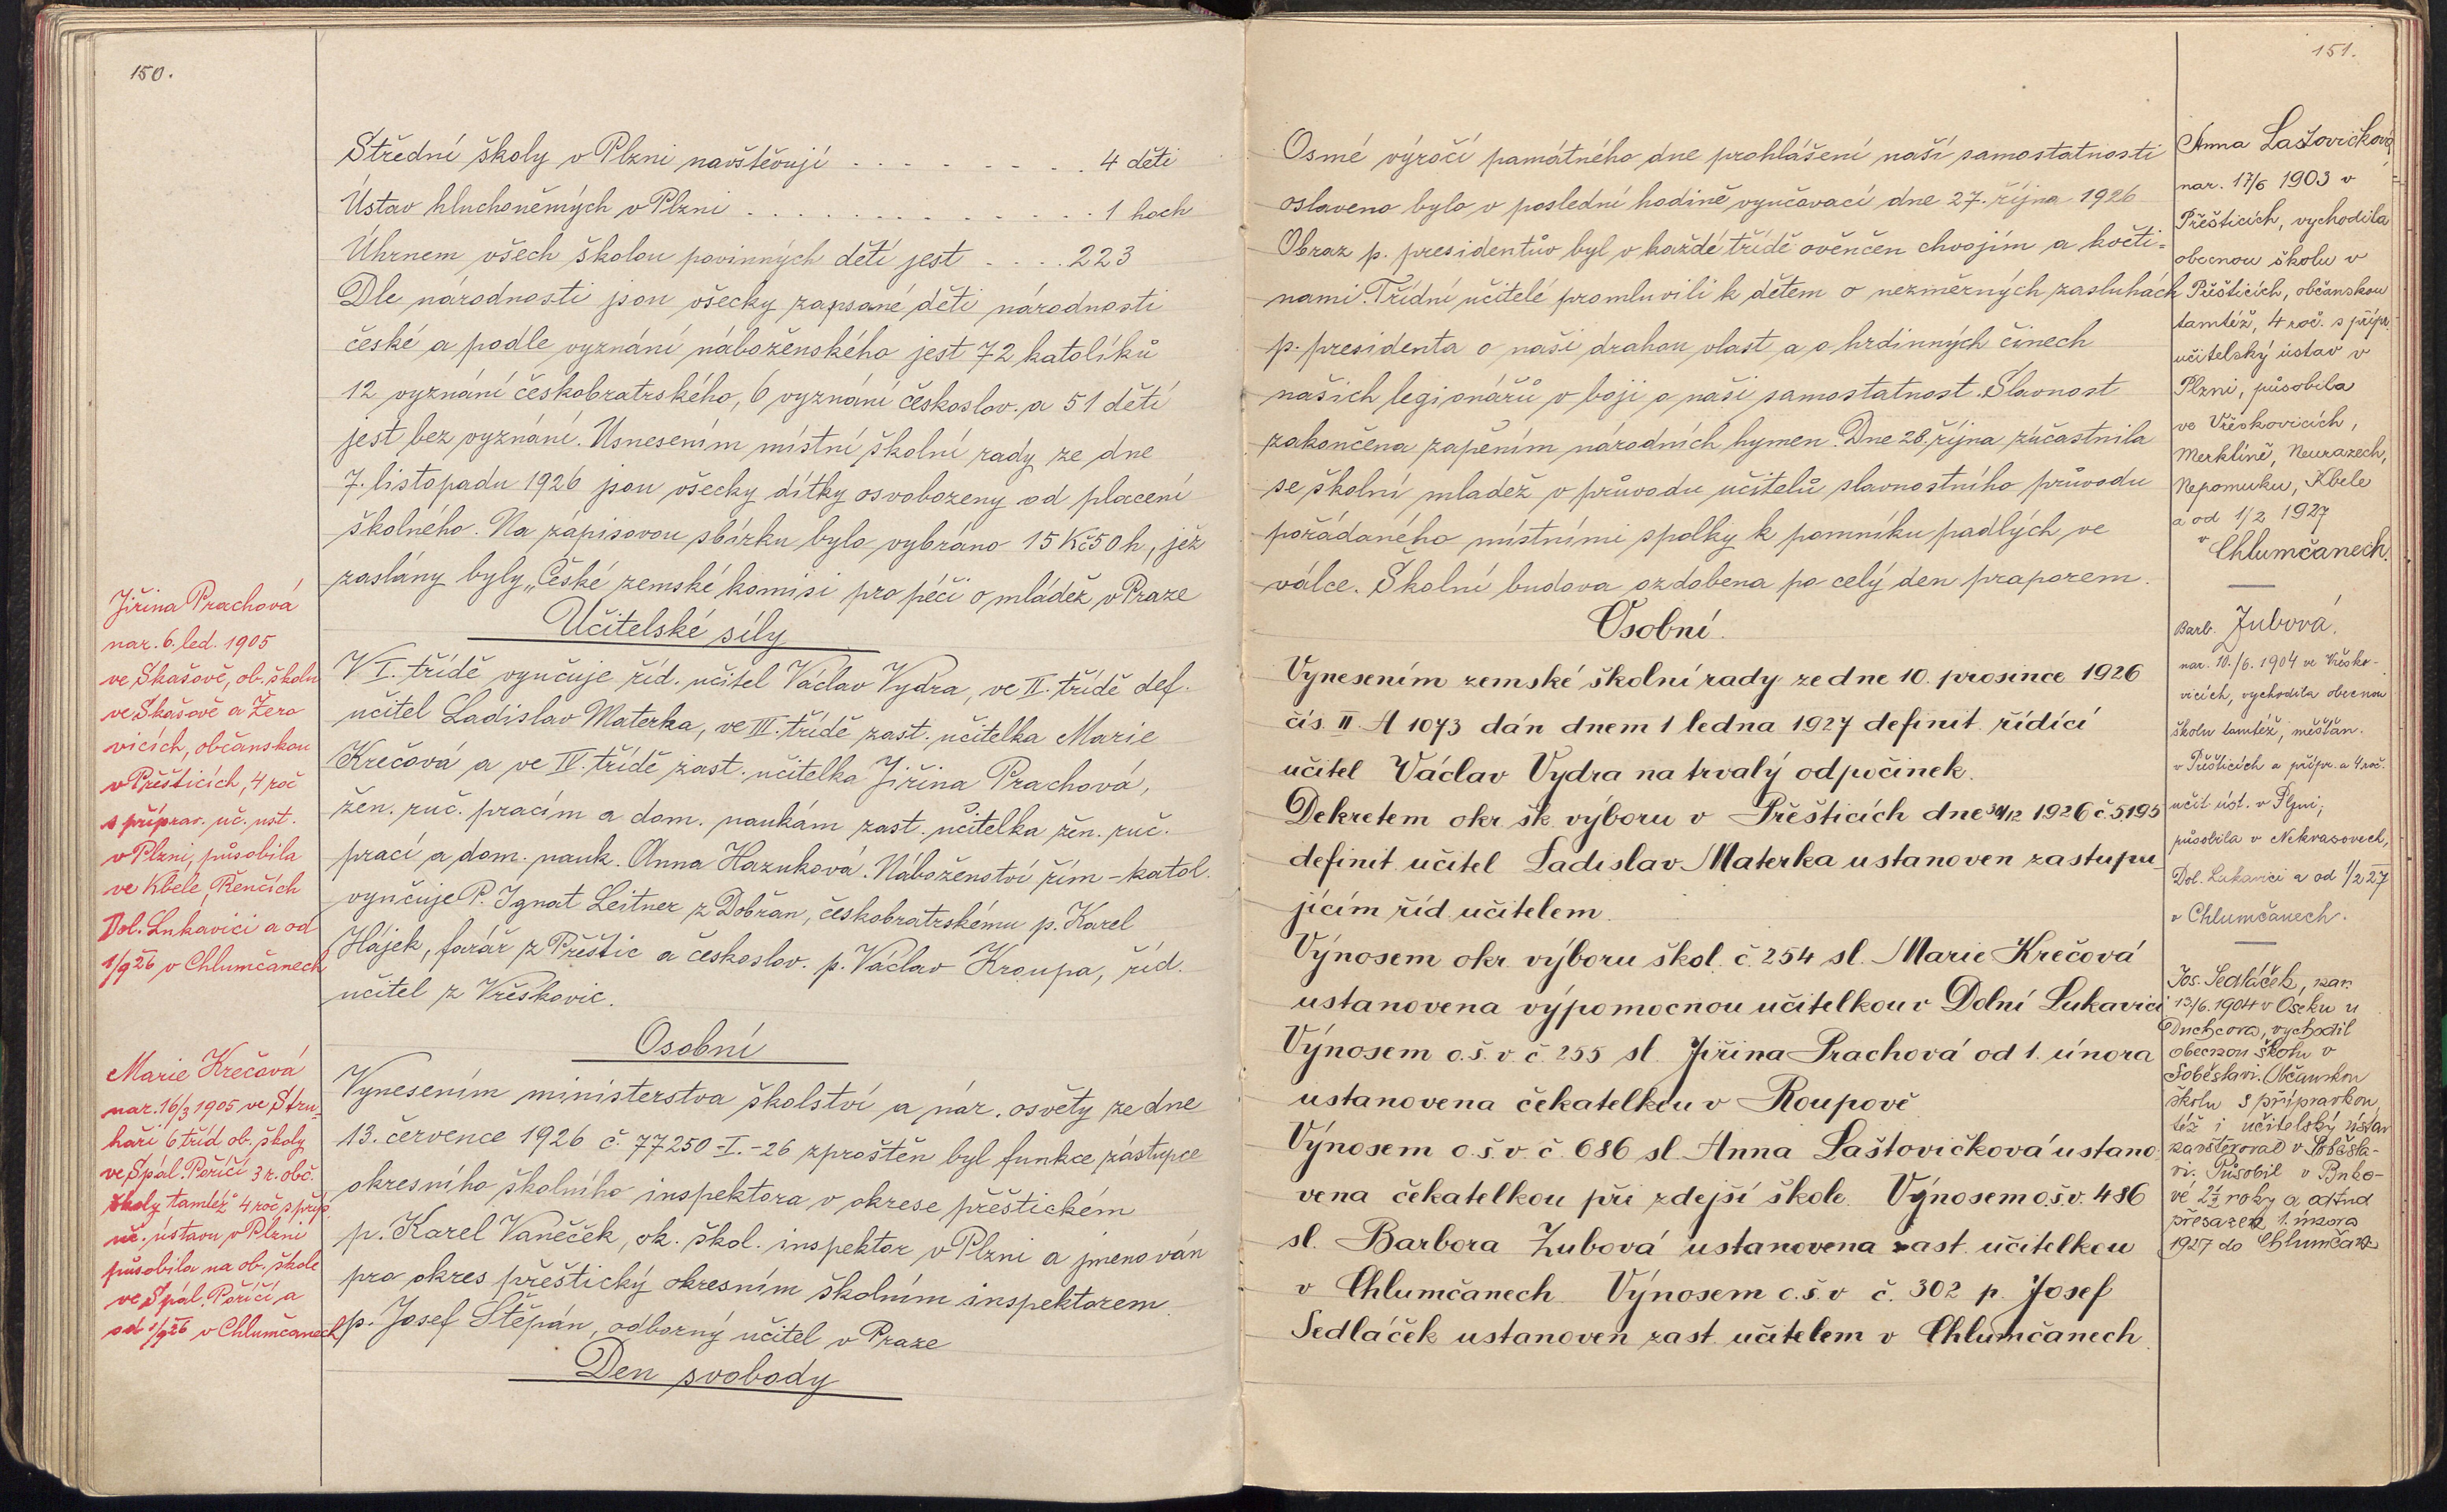 150.
Střední školy v Plzni navštěvují . . . . . . . . . 4 děti
Ústav hluchoněmých v Plzni . . . . . . . . . . . . . . 1 hoch
Úhrnem všech školou povinných dětí jest . . . . 223
Dle národnosti jsou všecky zapsané děti národnosti
české a podle vyznání náboženského jest 72 katolíků
12 vyznání českobratrského, 6 vyznání českoslov. a 51 dětí
jest bez vyznání. Usnesením místní školní rady ze dne
7. listopadu 1926 jsou všecky dítky osvobozeny od placení
školného. Na zápisovou sbírku bylo vybráno 15 Kč 50 h, jež
zaslány byly „České zemské komisi pro péči o mládež v Praze
Učitelské síly
V I. třídě vyučuje říd. učitel Václav Vydra, ve II. třídě def.
učitel Ladislav Materka, ve III. třídě zast. učitelka Marie
Krečová a ve IV. třídě zast. učitelka Jiřina Prachová,
žen. ruč. pracím a dom. naukám zast. učitelka žen. ruč.
prací a dom. nauk. Anna Hazuková. Náboženství řím-katol.
vyučuje P. Ignat Leitner z Dobřan, českobratrskému p. Karel
Hájek, farář z Přeštic a českoslov. p. Václav Kroupa, říd.
učitel z Vřeskovic.
Osobní
Vynesením ministerstva školství a nár. osvěty ze dne
13. července 1926 č. 77250-I.-26 zproštěn byl funkce zástupce
okresního školního inspektora v okrese přeštickém
p. Karel Vaněček, ok. škol. inspektor v Plzni a jmenován
pro okres přeštický okresním školním inspektorem
p. Josef Štěpán, odborný učitel v Praze
Den svobody
Jiřina Prachová
nar. 6. led. 1905
ve Skašově, ob. školu
ve Skašově a Žero
vicích, občanskou
v Přešticích, 4 roč
s příprav. uč. ust.
v Plzni, působila
ve Kbele, Řenčích
Dol. Lukavici a od
1/9 26 v Chlumčanech
Marie Krečová
nar. 16/3 1905 ve Stru-
haři 6 tříd ob. školy
ve Spál. Poříčí 3 r. obč.
školy tamtéž 4 roč s příp.
uč. ústavu v Plzni
působila na ob. škole
ve Spál. Poříčí a
od 1/9 26 v Chlumčanech
151.
Osmé výročí památného dne prohlášení naší samostatnosti
oslaveno bylo v poslední hodině vyučovací dne 27. října 1926
Obraz p. presidentův byl v každé třídě ověnčen chvojím a květi=
nami. Třídní učitelé promluvili k dětem o nezměrných zasluhách
p. presidenta o naši drahou vlast a o hrdinných činech
našich legionářů v boji o naši samostatnost. Slavnost
zakončena zapěním národních hymen. Dne 28. října zúčastnila
se školní mladež v průvodu učitelů slavnostního průvodu
pořádaného místními spolky k pomníku padlých ve
válce. Školní budova ozdobena po celý den praporem.
Osobní.
Vynesením zemské školní rady ze dne 10. prosince 1926
čís. II A 1073 dán dnem 1 ledna 1927 definit. řídící
učitel Václav Vydra na trvalý odpočinek.
Dekretem okr. šk. výboru v Přešticích dne 31/12 1926 č. 5195
definit. učitel Ladislav Materka ustanoven zastupu-
jícím říd. učitelem.
Výnosem okr. výboru škol. č. 254 sl. Marie Krečová
ustanovena výpomocnou učitelkou v Dolní Lukavici
Výnosem o.š.v. č. 255 sl. Jiřina Prachová od 1. února
ustanovena čekatelkou v Roupově
Výnosem o.š.v. č. 686 sl. Anna Laštovičková ustano-
vena čekatelkou při zdejší škole. Výnosem o.š.v. 486
sl. Barbora Zubová ustanovena zast. učitelkou
v Chlumčanech. Výnosem o.š.v č. 302 p. Josef
Sedláček ustanoven zast. učitelem v Chlumčanech.
Anna Laštovičková
nar. 17/6 1903 v
Přešticích, vychodila
obecnou školu v
Přešticích, občanskou
tamtéž, 4 roč. s přípr.
učitelský ústav v
Plzni, působila
ve Vřeskovicích,
Merklíně, Neurazech,
Nepomuku, Kbele
a od 1/2 1927
v Chlumčanech.
Barb. Zubová.
nar. 10./6. 1904 ve Vřesko-
vicích, vychodila obecnou
školu tamtéž, měšťan.
v Přešticích a přípr. a 4 roč.
učit. úst. v Plzni,
působila v Nekvasovech,
Dol. Lukavici a od 1/2 27
v Chlumčanech.
Jos. Sedláček, nar.
13/6. 1904 v Oseku u
Duchcova, vychodil
obecnou školu v
Soběslavi. Občanskou
školu s přípravkou
též i učitelský ústav
navštěvoval v Soběsla-
vi. Působil v Buko-
vé 2½ roky a odtud
přesazen 1. února
1927 do Chlumčan